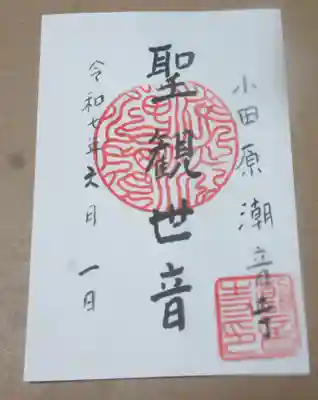 小田原 潮音寺
聖観世音
令和七年六月 一日